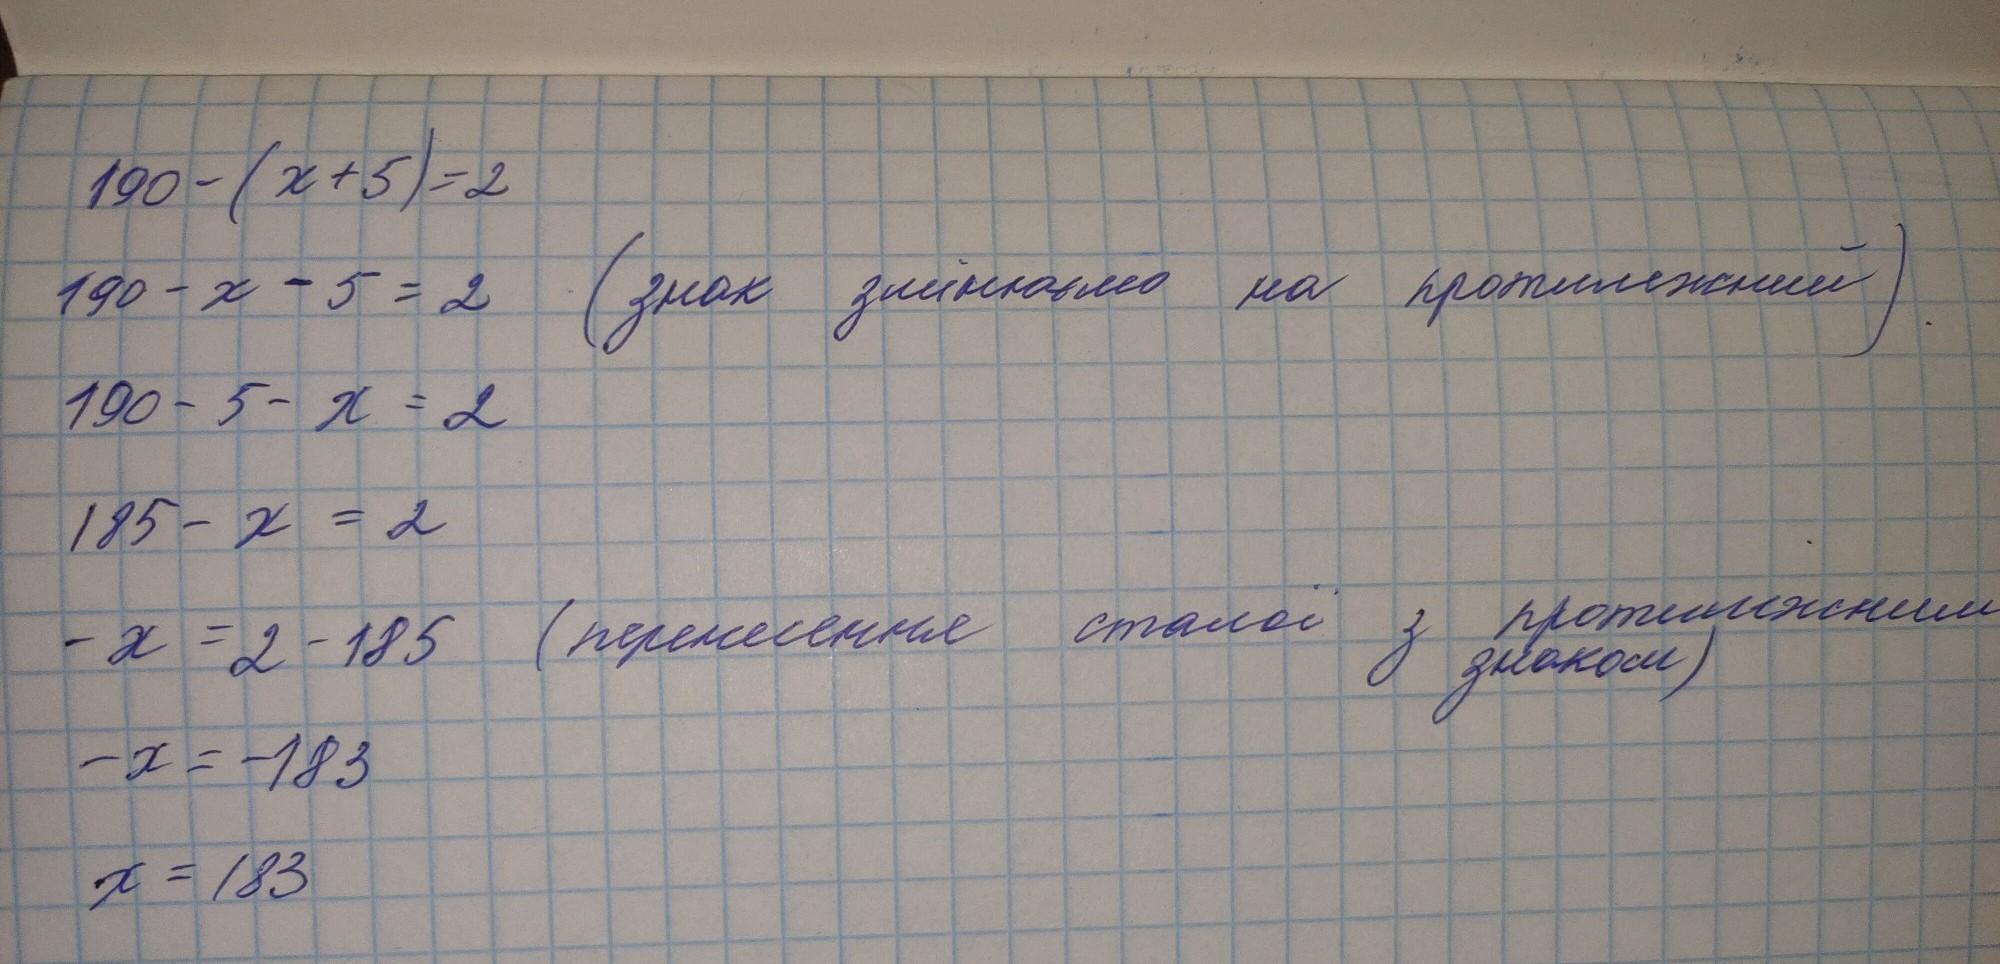 190 - (x + 5) = 2
190 - x - 5 = 2 (знак змінюємо на протилежний)
190 - 5 - x = 2
185 - x = 2
- x = 2 - 185 (перенесення сталої з протилежним
знаком)
- x = -183
x = 183